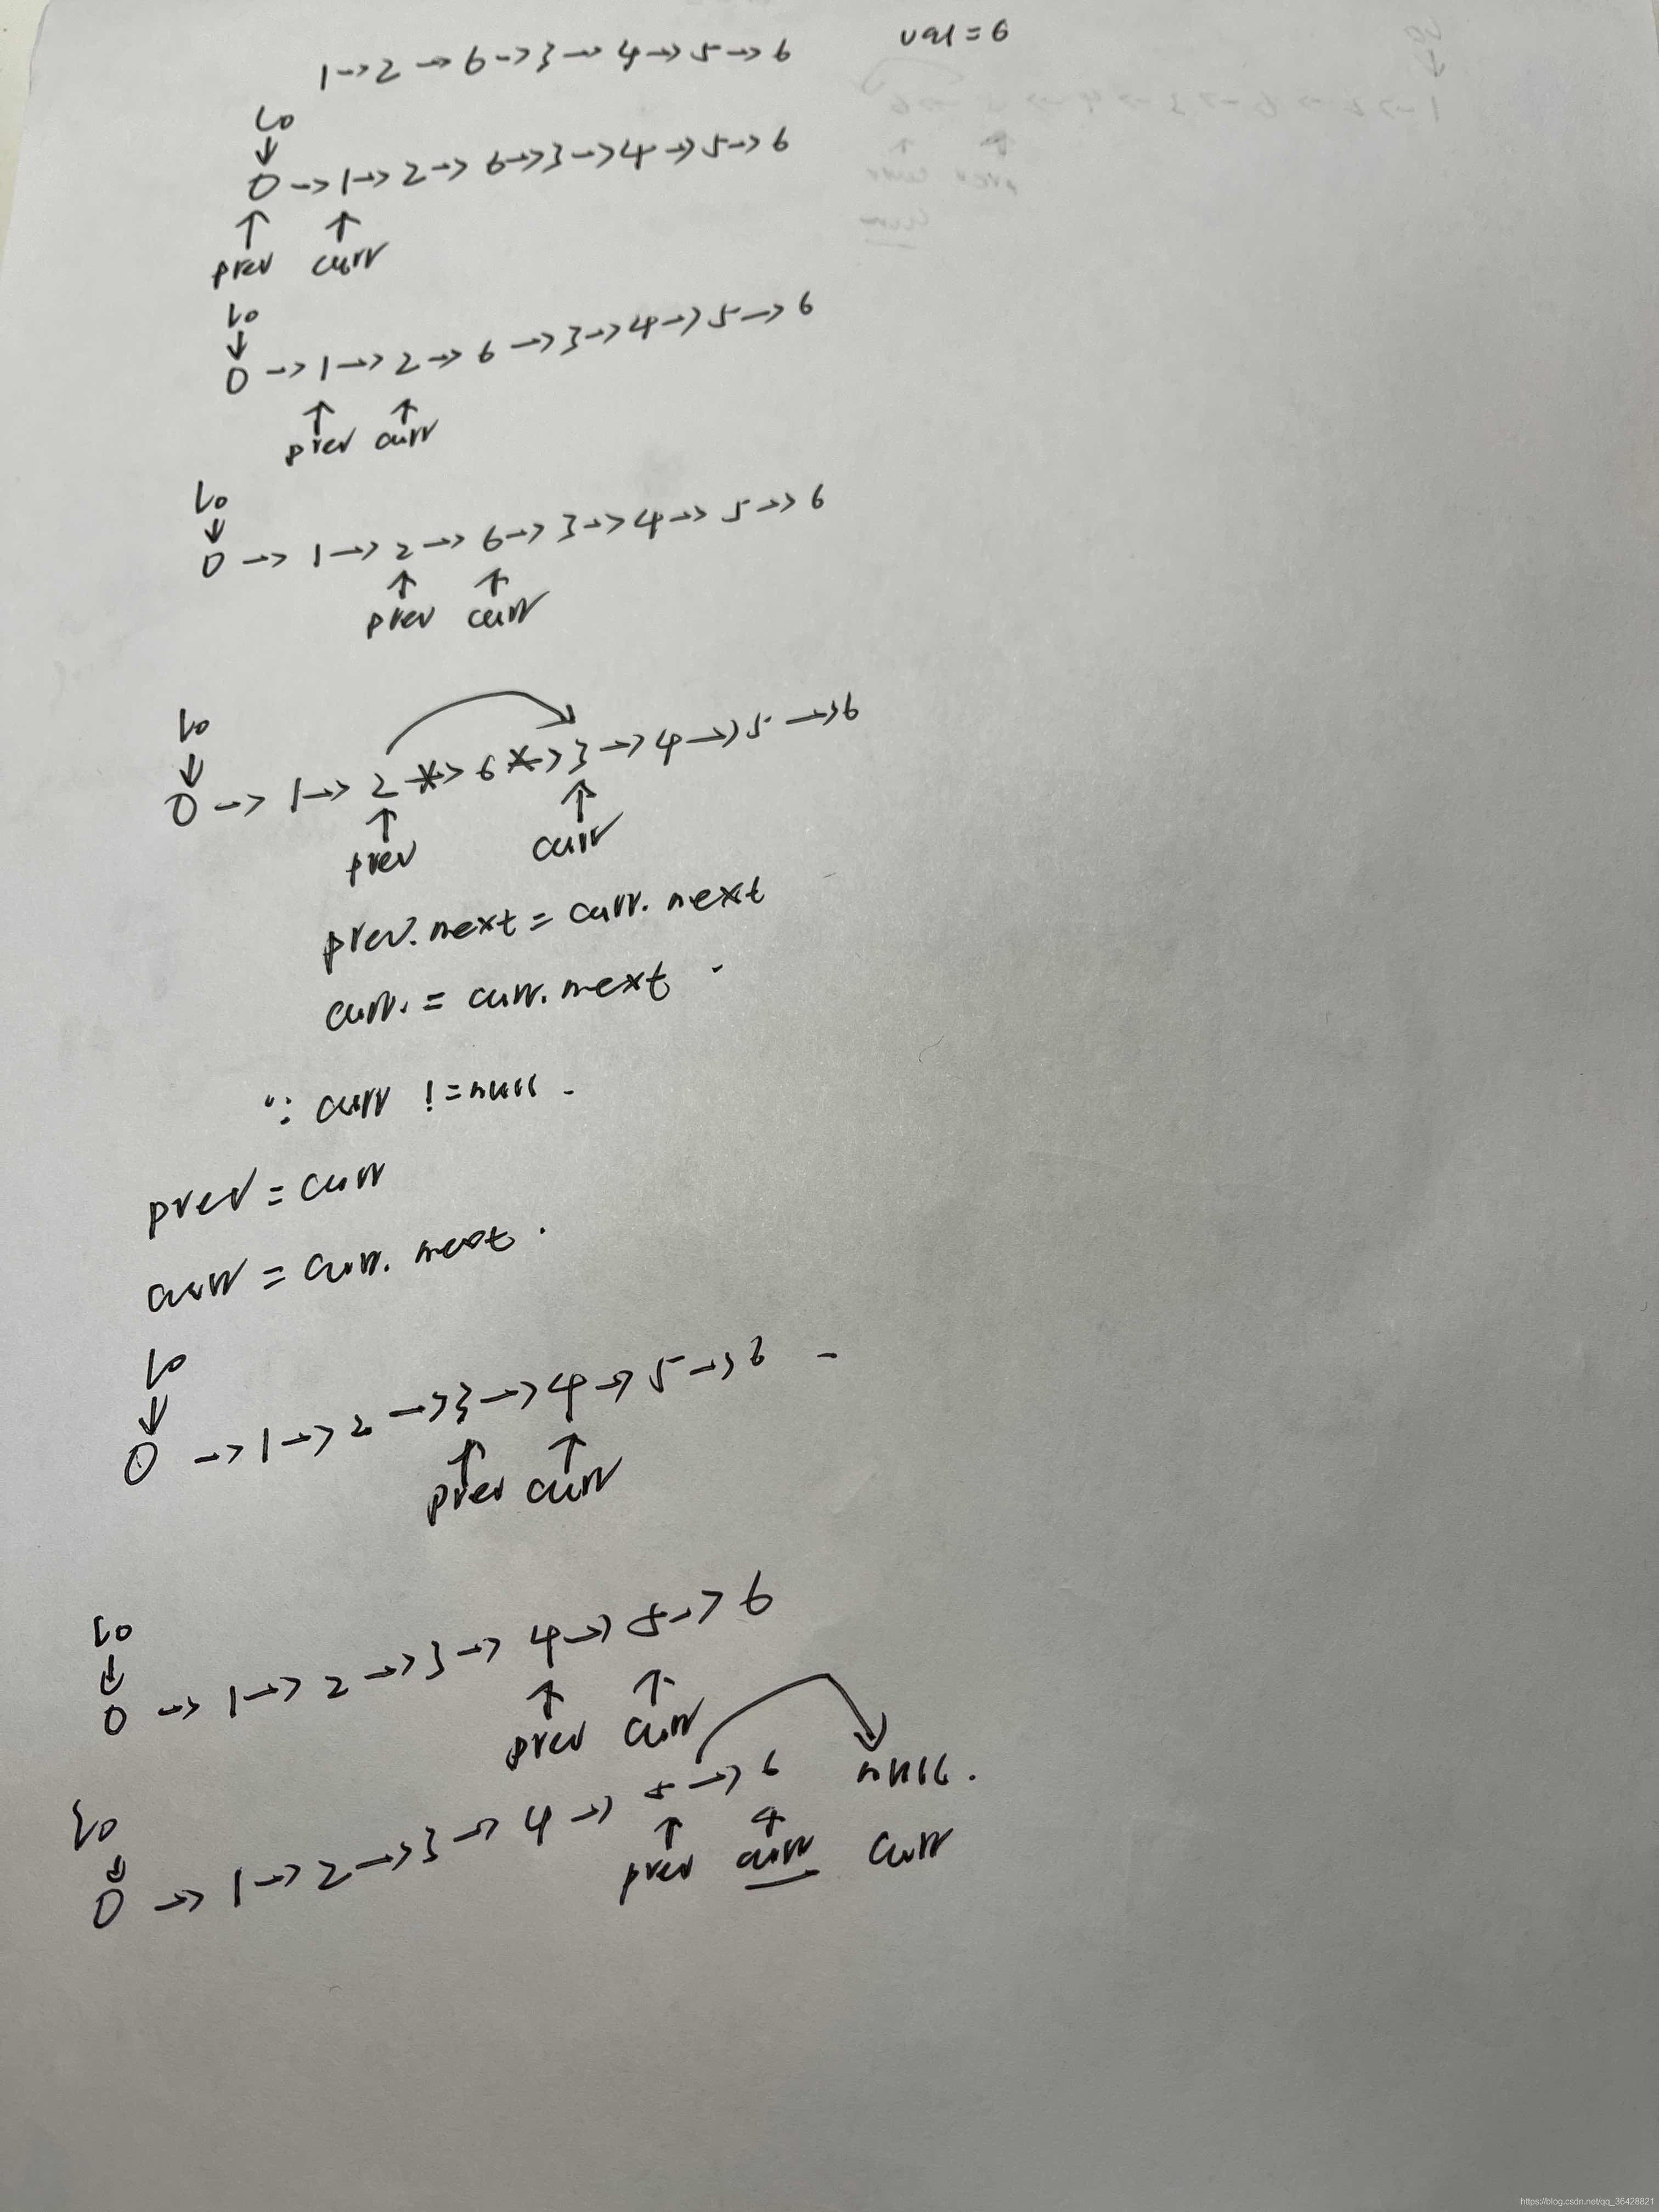 1->2->6->3->4->5->6 val=6
L0
↓
0->1->2->6->3->4->5->6
↑ ↑
prev curr
L0
↓
0->1->2->6->3->4->5->6
↑ ↑
prev curr
L0
↓
0->1->2->6->3->4->5->6
↑ ↑
prev curr
L0
↓
0->1->2->6->3->4->5->6
↑ ↑
prev curr
prev.next=curr.next
curr.=curr.next.
∵ curr !=null.
prev=curr
curr=curr.next.
L0
↓
0->1->2->3->4->5->6
↑ ↑
prev curr
L0
↓
0->1->2->3->4->5->6
↑ ↑
prev curr
L0
↓
0->1->2->3->4->5->6 null.
↑ ↑
prev curr curr
https://blog.csdn.net/qq_36428821